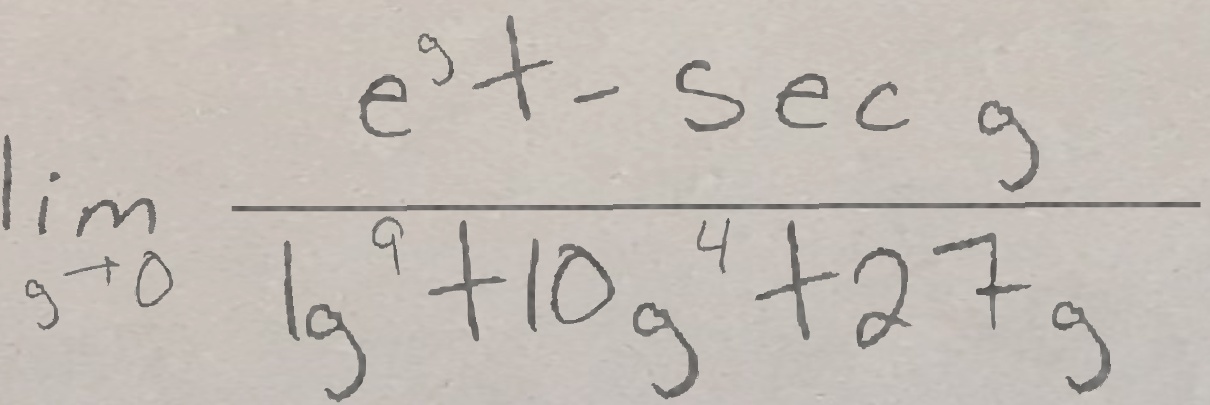 \lim_{g \to 0} \frac{e^{g} + - \sec g}{1g^{9} + 10g^{4} + 27g}